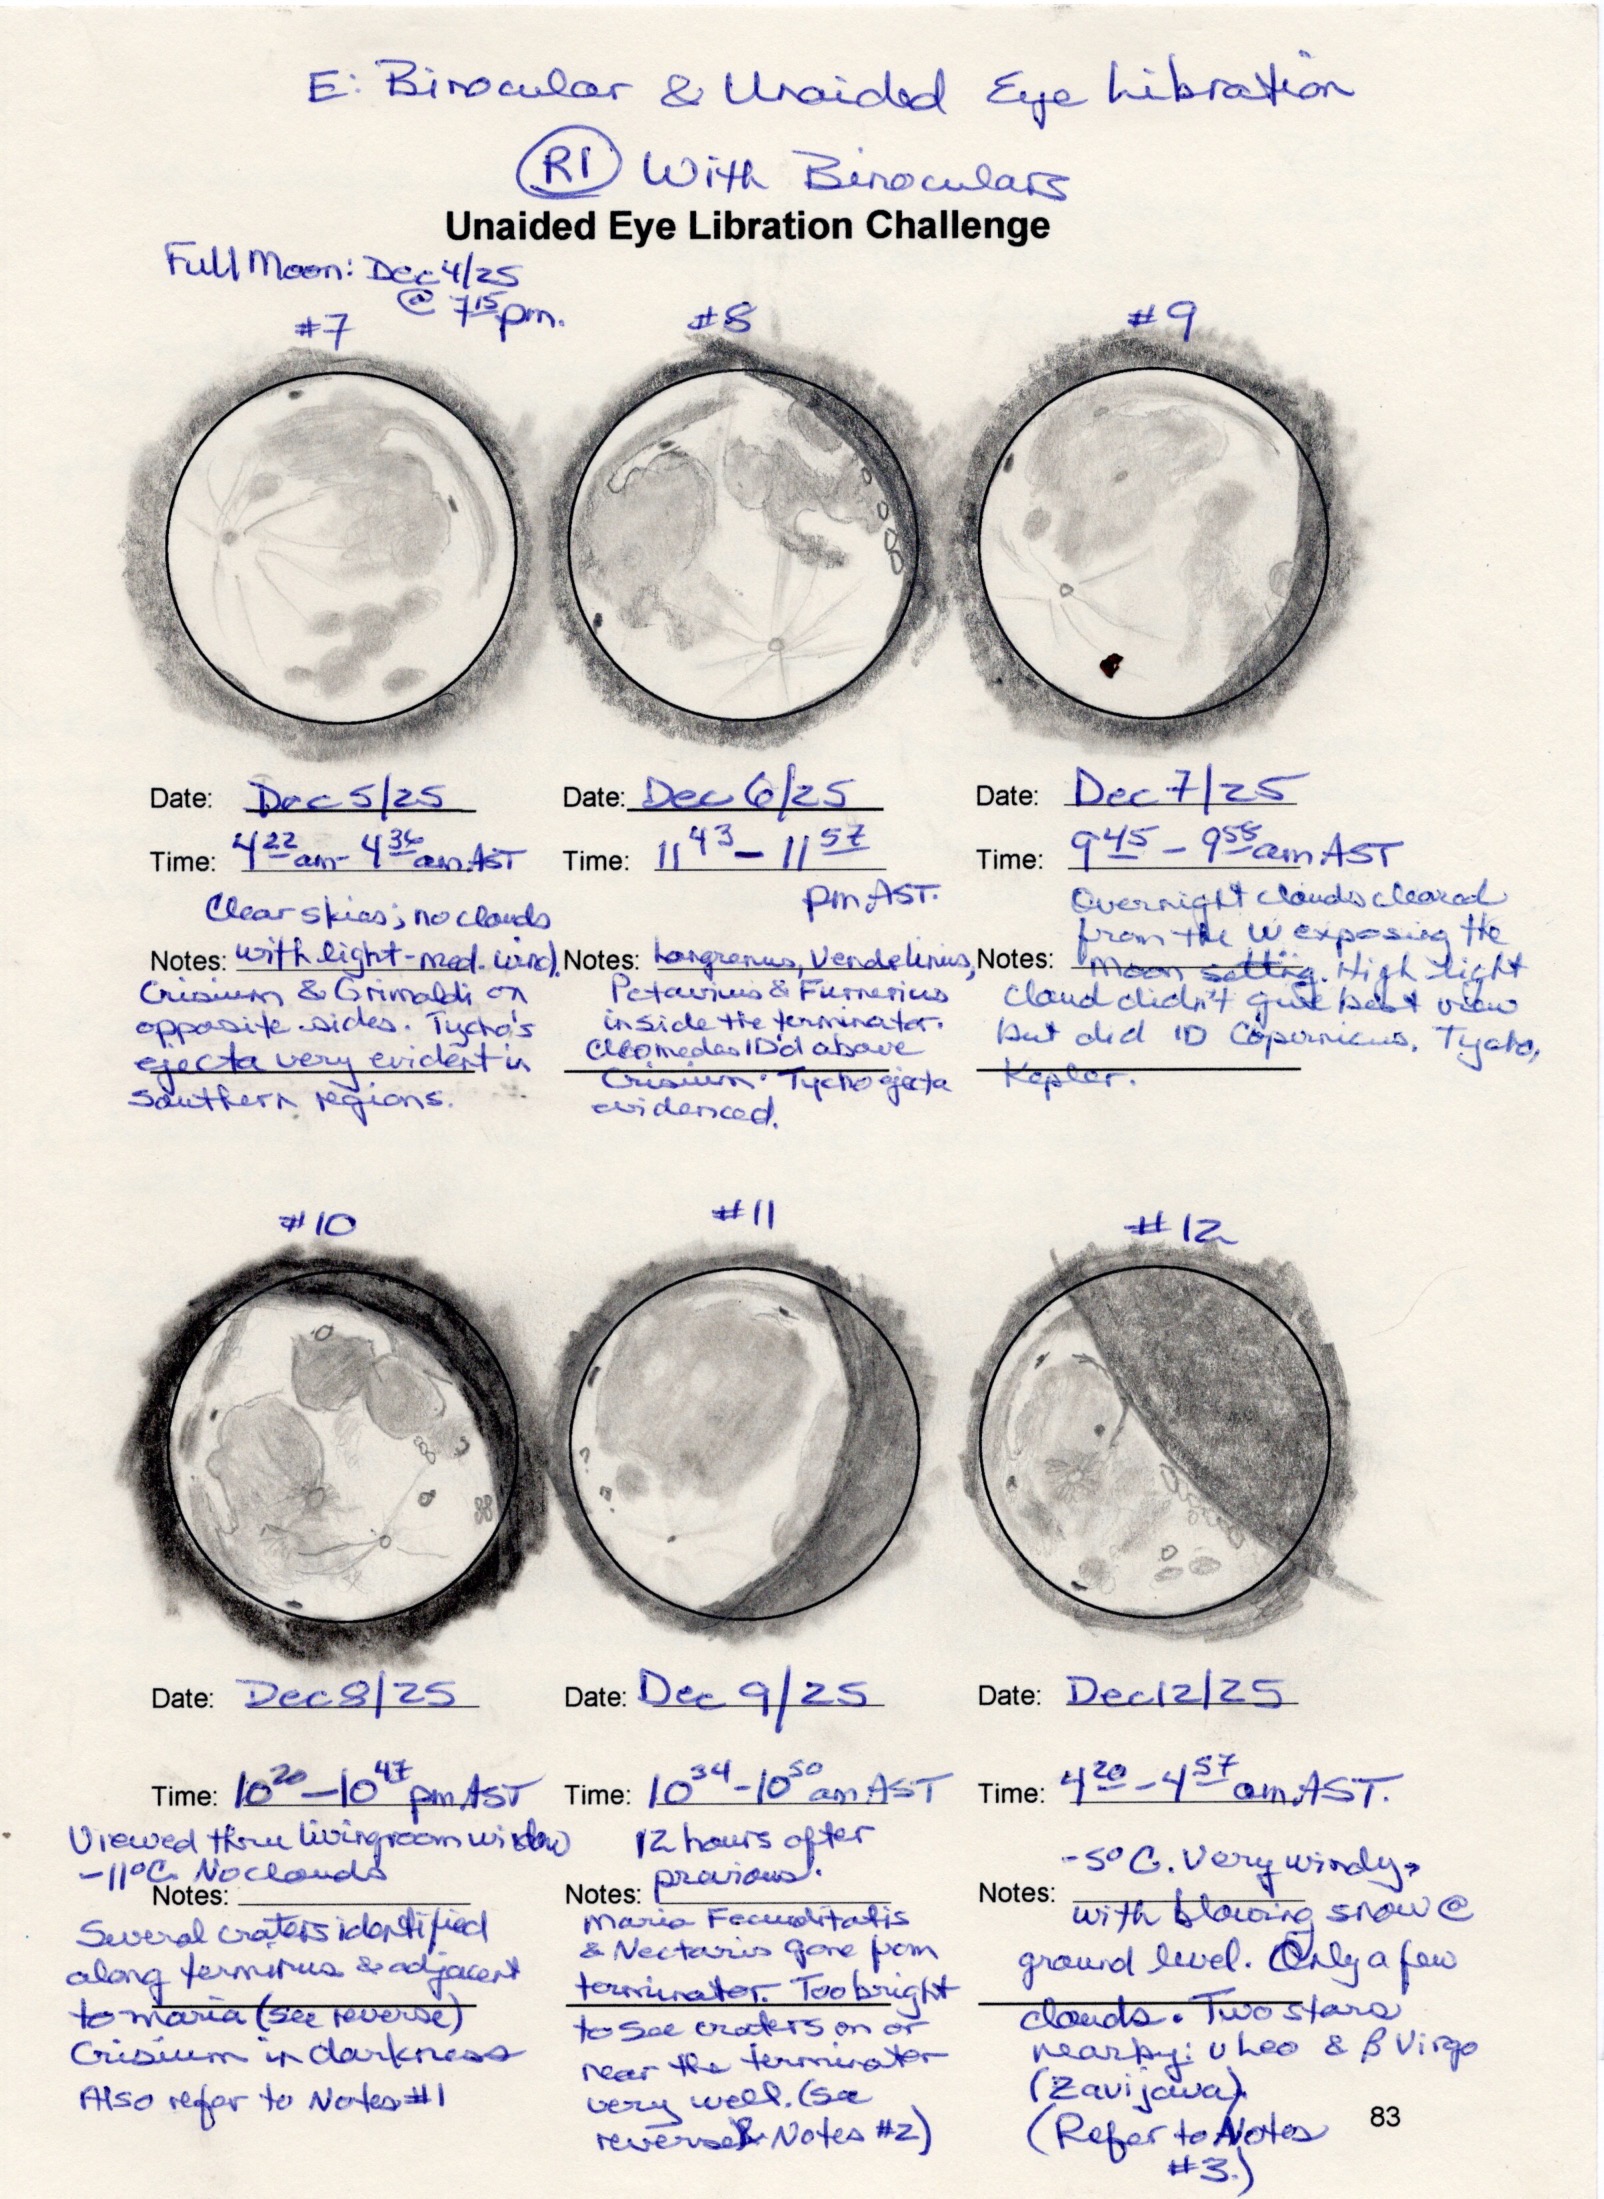 E: Binocular & Unaided Eye Libration
R1 With Binoculars
Unaided Eye Libration Challenge
Full Moon: Dec 4/25
@ 7 15 pm.
#7
#8
#9
Date: Dec 5/25
Date: Dec 6/25
Date: Dec 7/25
Time: 4 22 am - 4 36 am AST
Time: 11 43 - 11 57
pm AST.
Time: 9 45 - 9 58 am AST
Clear skies; no clouds
Notes: with light-med. wind.
Crisium & Grimaldi on
opposite sides. Tycho's
ejecta very evident in
Southern regions.
Notes: Langrenus, Vendelinus,
Petavius & Furnerius
inside the terminator.
Cleomedes ID'd above
Crisium. Tycho ejecta
evidenced.
Overnight clouds cleared
from the W exposing the
Notes: Moon setting. High light
cloud didn't give best view
but did ID Copernicus, Tycho,
Kepler.
#10
#11
#12
Date: Dec 8/25
Date: Dec 9/25
Date: Dec 12/25
Time: 10 20 - 10 47 pm AST
Time: 10 34 - 10 50 am AST
Time: 4 20 - 4 57 am AST.
Viewed thru livingroom window
-11°C No clouds
Notes:
Several craters identified
along terminus & adjacent
to maria (see reverse)
Crisium in darkness
Also refer to Notes #1
12 hours after
previous.
Notes:
Maria Fecunditatis
& Nectaris gone from
terminator. Too bright
to see craters on or
near the terminator
very well. (see
reverse & Notes #2)
-5°C. Very windy,
Notes:
with blowing snow @
ground level. Only a few
clouds. Two stars
nearby: υ Leo & β Virgo
(Zavijava).
(Refer to Notes
#3.)
83